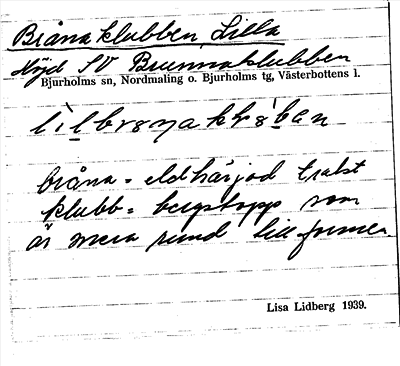 Bråna klubben, Lilla
Höjd SV Brännaklubben
Bjurholms sn, Nordmaling o. Bjurholms tg, Västerbottens l.
bråna = eldhärjad trakt
klubb = bergstopp som
är mera rund till formen.
Lisa Lidberg 1939.